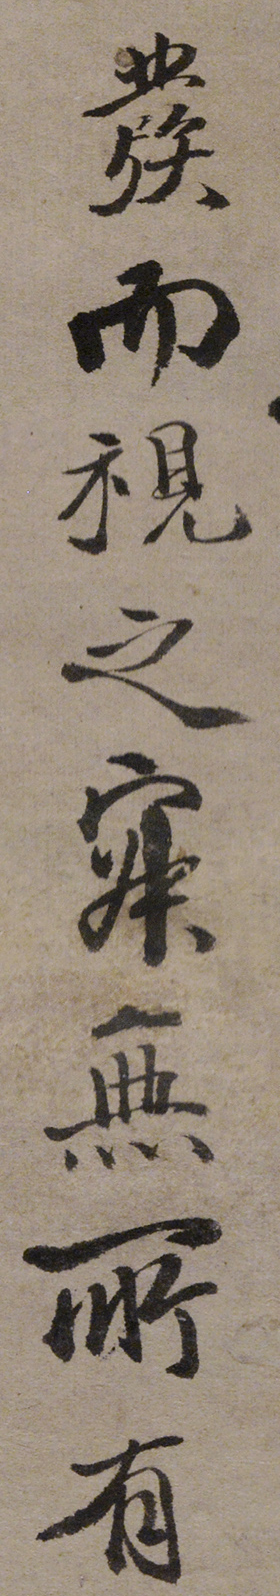 發而視之寂無所有